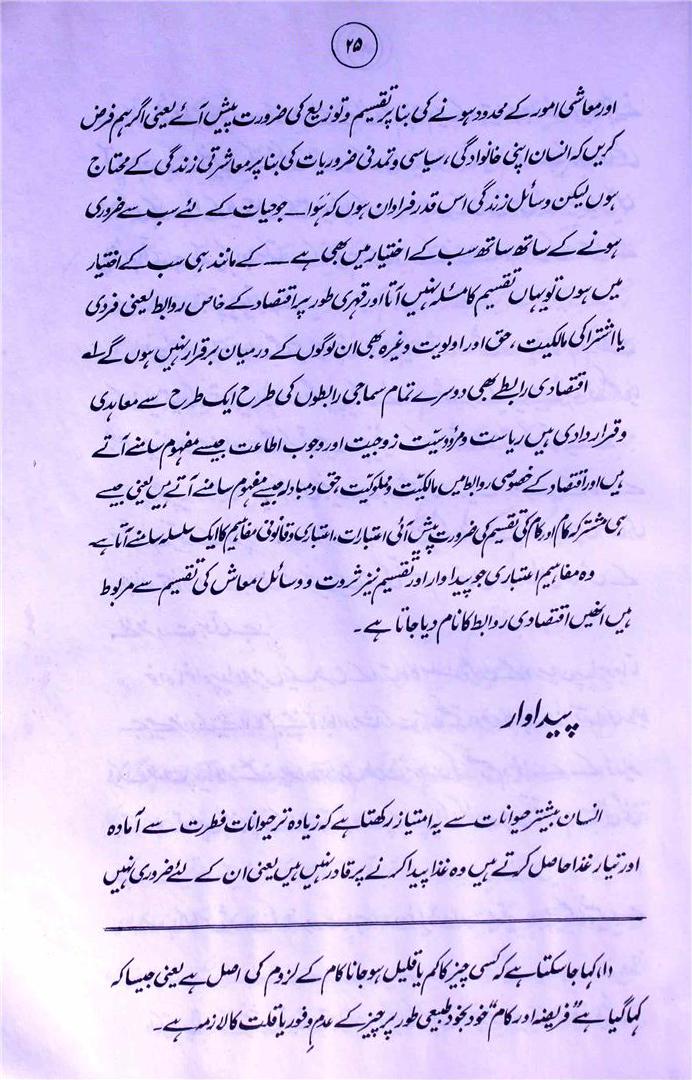 ۲۵
اور معاشی امور کے محدود ہونے کی بنا پر تقسیم و توزیع کی ضرورت پیش آئے یعنی اگر ہم فرض
کریں کہ انسان اپنی خانوادگی، سیاسی و تمدنی ضروریات کی بنا پر معاشرتی زندگی کے محتاج
ہوں لیکن وسائل زندگی اس قدر فراوان ہوں کہ ہَوا ــ جو حیات کے لئے سب سے ضروری
ہونے کے ساتھ ساتھ سب کے اختیار میں بھی ہے ــ کے مانند ہی سب کے اختیار
میں ہوں تو یہاں تقسیم کا مسئلہ نہیں آتا اور قہری طور پر اقتصاد کے خاص روابط یعنی فردی
یا اشتراکی مالکیت، حق اور اولویت وغیرہ بھی ان لوگوں کے درمیان برقرار نہیں ہوں گے ؎۱
اقتصادی رابطے بھی دوسرے تمام سماجی رابطوں کی طرح ایک طرح سے معاہدی
و قراردادی ہیں ریاست و مرؤوسیّت زوجیت اور وجوب اطاعت جیسے مفہوم سامنے آتے
ہیں اور اقتصاد کے خصوصی روابط میں مالکیّت و مملوکیّت، حق و مبادلہ جیسے مفہوم سامنے آتے ہیں یعنی جیسے
ہی مشترکہ کام اور کام کی تقسیم کی ضرورت پیش آئی اعتبارات، اعتباری و قانونی مفاہیم کا ایک سلسلہ سامنے آتا ہے۔
وہ مفاہیم اعتباری جو پیداوار اور تقسیم نیز ثروت و وسائل معاش کی تقسیم سے مربوط
ہیں انھیں اقتصادی روابط کا نام دیا جاتا ہے۔
پیداوار
انسان بیشتر حیوانات سے یہ امتیاز رکھتا ہے کہ زیادہ تر حیوانات فطرت سے آمادہ
اور تیار غذا حاصل کرتے ہیں وہ غذا پیدا کرنے پر قادر نہیں ہیں یعنی ان کے لئے ضروری نہیں
(۱) کہا جا سکتا ہے کہ کسی چیز کا کم یا قلیل ہو جانا کام کے لزوم کی اصل ہے یعنی جیسا کہ
کہا گیا ہے "فریضہ اور کام" خود بخود طبیعی طور پر چیز کے عدمِ وفور یا قلت کا لازمہ ہے۔